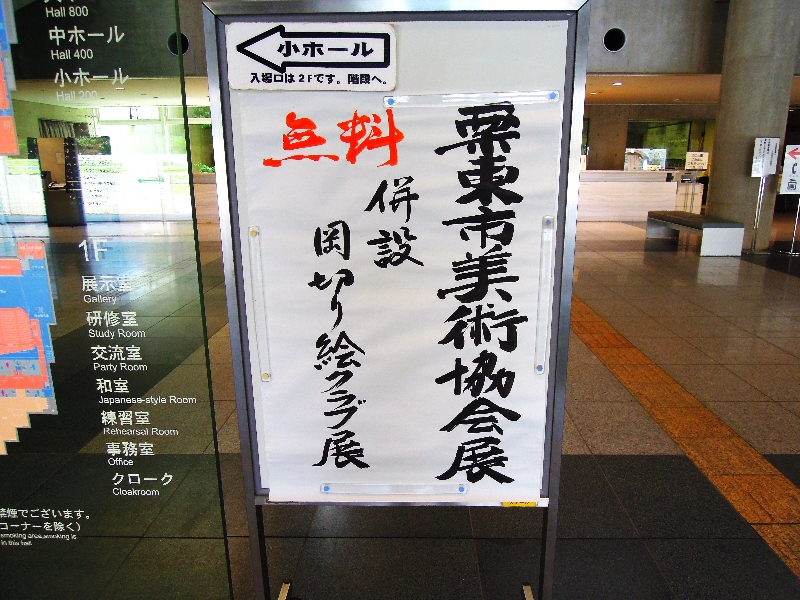 Hall 800
中ホール
Hall 400
小ホール
Hall 200
1F
展示室
Gallery
研修室
Study Room
交流室
Party Room
和室
Japanese-style Room
練習室
Rehearsal Room
事務室
Office
クローク
Cloakroom
禁煙でございます。
コーナーを除く)
smoking area,smoking is
in this hall
小ホール
入場口は2Fです。階段へ。
栗東市美術協会展
無料
併設
岡切り絵クラブ展